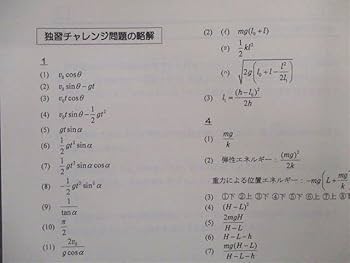 独習チャレンジ問題の略解
1
(1) v₀ cosθ
(2) v₀ sinθ−gt
(3) v₀t cosθ
(4) v₀t sinθ−1/2 gt²
(5) gt sinα
(6) 1/2 gt² sinα
(7) 1/2 gt² sinα cosα
(8) −1/2 gt² sin²α
(9) 1/tanα
(10) π/2
(11) 2v₀/(g cosα)
(2) (イ) mg(l₀+l)
(ロ) 1/2 kl²
(ハ) √(2g(l₀+l−l²/2l₁))
(3) l₁=(h−l₀)²/2h
4
(1) mg/k
(2) 弾性エネルギー：(mg)²/2k
重力による位置エネルギー：−mg(L+mg/k
(3) ①下 ②上 ③下 ④下 ⑤下 ⑥上 ⑦上 ⑧
(4) (H−L)²
(5) 2mgH/(H−L)
(6) H−L−h
(7) mg(H−L)/(H−L−h)